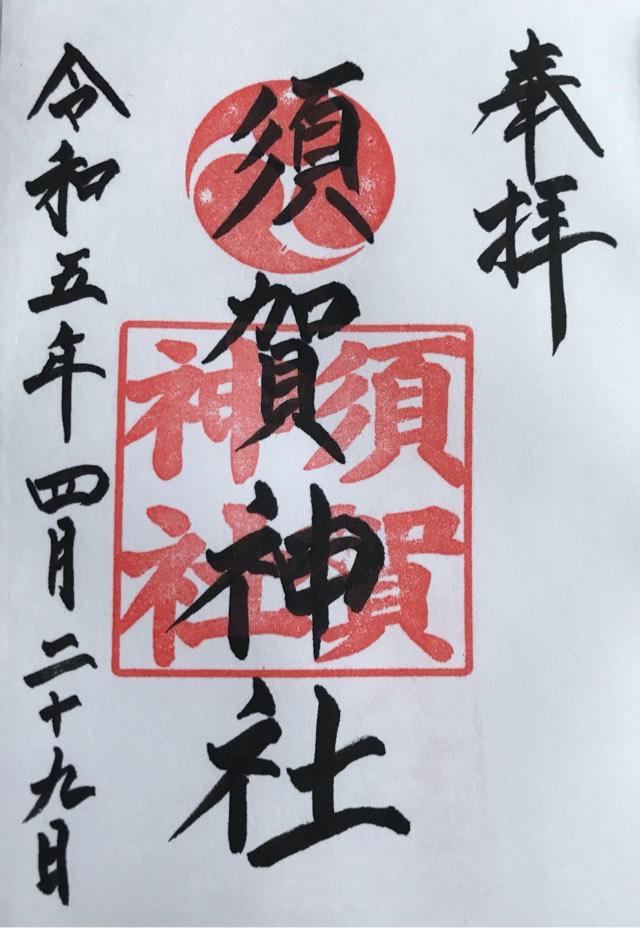 奉拝
須賀神社
須賀
神社
令和五年四月二十九日